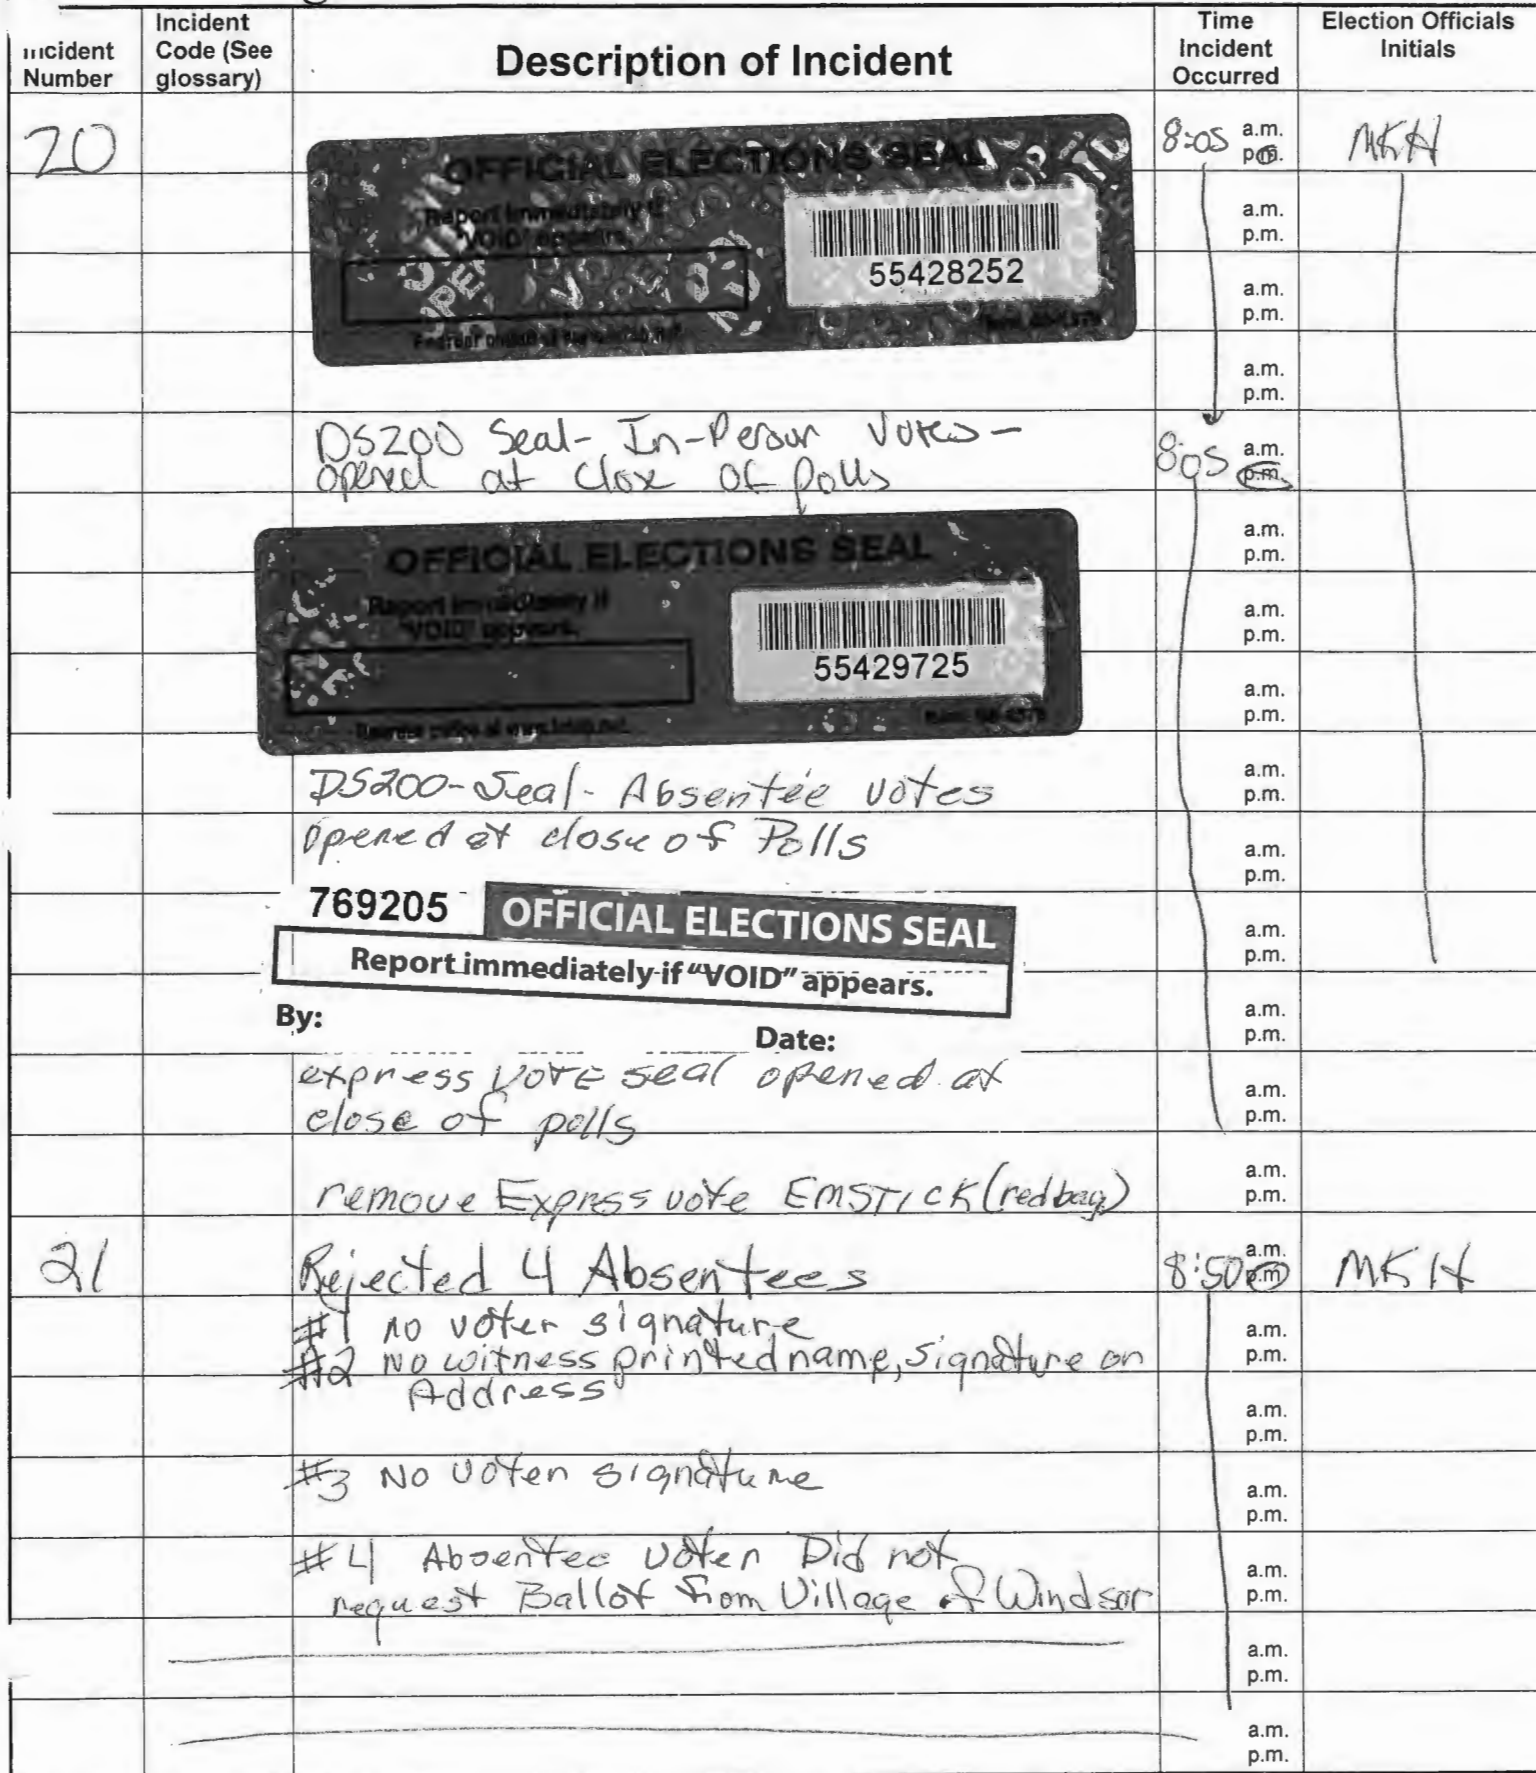 Incident Number
Incident Code (See glossary)
Description of Incident
Time Incident Occurred
Election Officials Initials
20
OFFICIAL ELECTIONS SEAL
Report immediately if
"VOID" appears.
55428252
8:05 a.m. p.m.
MKH
a.m.
p.m.
a.m.
p.m.
a.m.
p.m.
DS200 Seal- In-Person Votes-
opened at close of polls
8:05 a.m. p.m.
OFFICIAL ELECTIONS SEAL
Report immediately if
"VOID" appears.
55429725
a.m.
p.m.
a.m.
p.m.
a.m.
p.m.
DS200-Seal- Absentee votes
opened at close of Polls
a.m.
p.m.
a.m.
p.m.
769205 OFFICIAL ELECTIONS SEAL
Report immediately if "VOID" appears.
By: Date:
a.m.
p.m.
a.m.
p.m.
express VOTE seal opened at
close of polls
a.m.
p.m.
remove Express vote EMSTICK (red bag)
a.m.
p.m.
21
Rejected 4 Absentees
8:50 a.m. p.m.
MKH
#1 no voter signature
#2 No witness printed name, signature on
Address
a.m.
p.m.
a.m.
p.m.
#3 No voter signature
a.m.
p.m.
#4 Absentee voter Did not
request Ballot from Village of Windsor
a.m.
p.m.
a.m.
p.m.
a.m.
p.m.